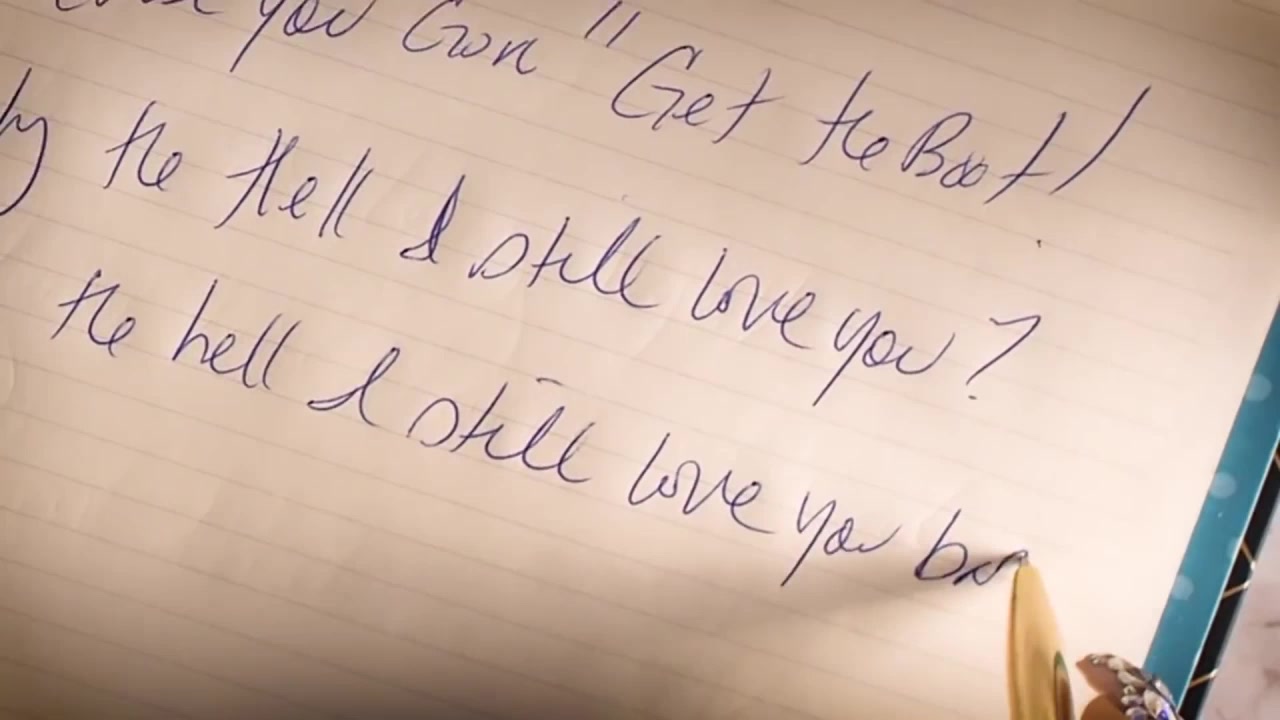 you Gon "Get the Boot!
the Hell I still love you?
the hell I still love you ba